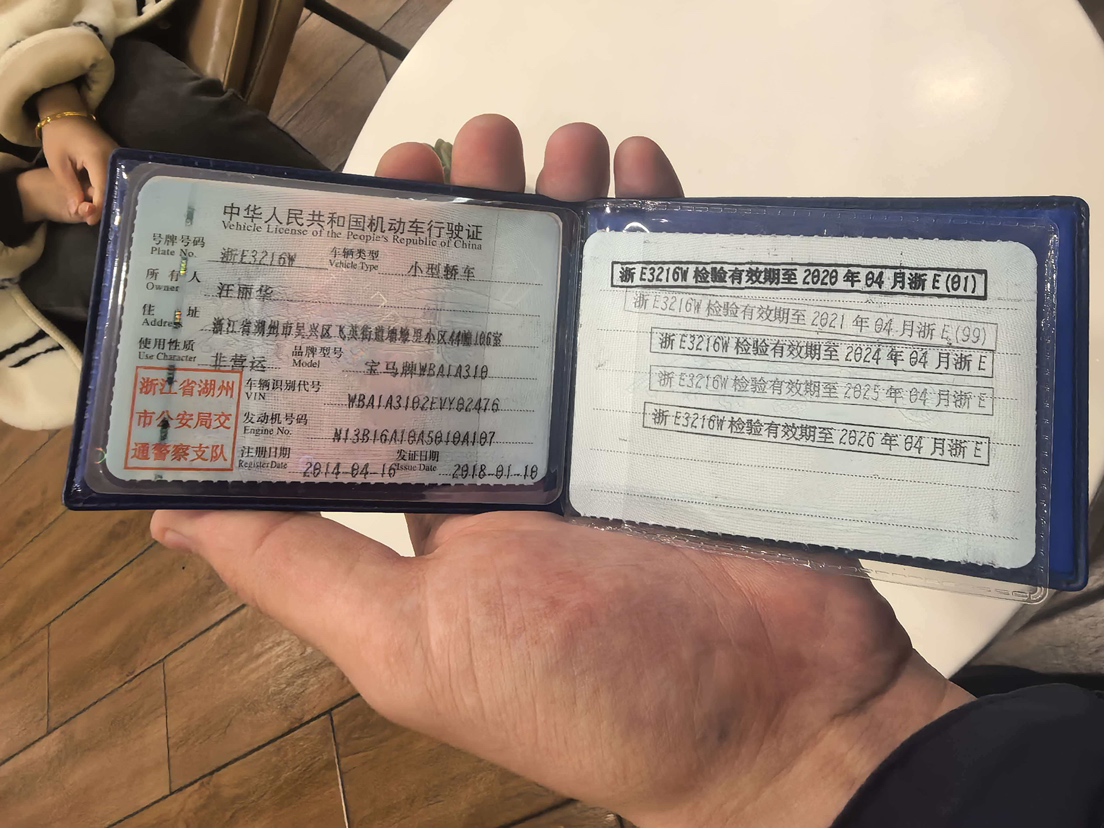 中华人民共和国机动车行驶证
Vehicle License of the People's Republic of China
号牌号码 浙E3216W 车辆类型 小型轿车
Plate No. Vehicle Type
所有人 汪丽华
Owner
住址 浙江省湖州市吴兴区飞英街道墙壕里小区44幢106室
Address
使用性质 非营运 品牌型号 宝马牌WBA1A310
Use Character Model
浙江省湖州
市公安局交
通警察支队
车辆识别代号 WBA1A3102EVY02476
VIN
发动机号码 N13B16A10A5010A107
Engine No.
注册日期 2014-04-16 发证日期 2018-01-10
Register Date Issue Date
浙E3216W 检验有效期至 2020 年 04 月浙 E(01)
浙E3216W 检验有效期至 2021 年 04 月浙 E(99)
浙E3216W 检验有效期至 2024 年 04 月浙 E
浙E3216W 检验有效期至 2025 年 04 月浙 E
浙E3216W 检验有效期至 2026 年 04 月浙 E